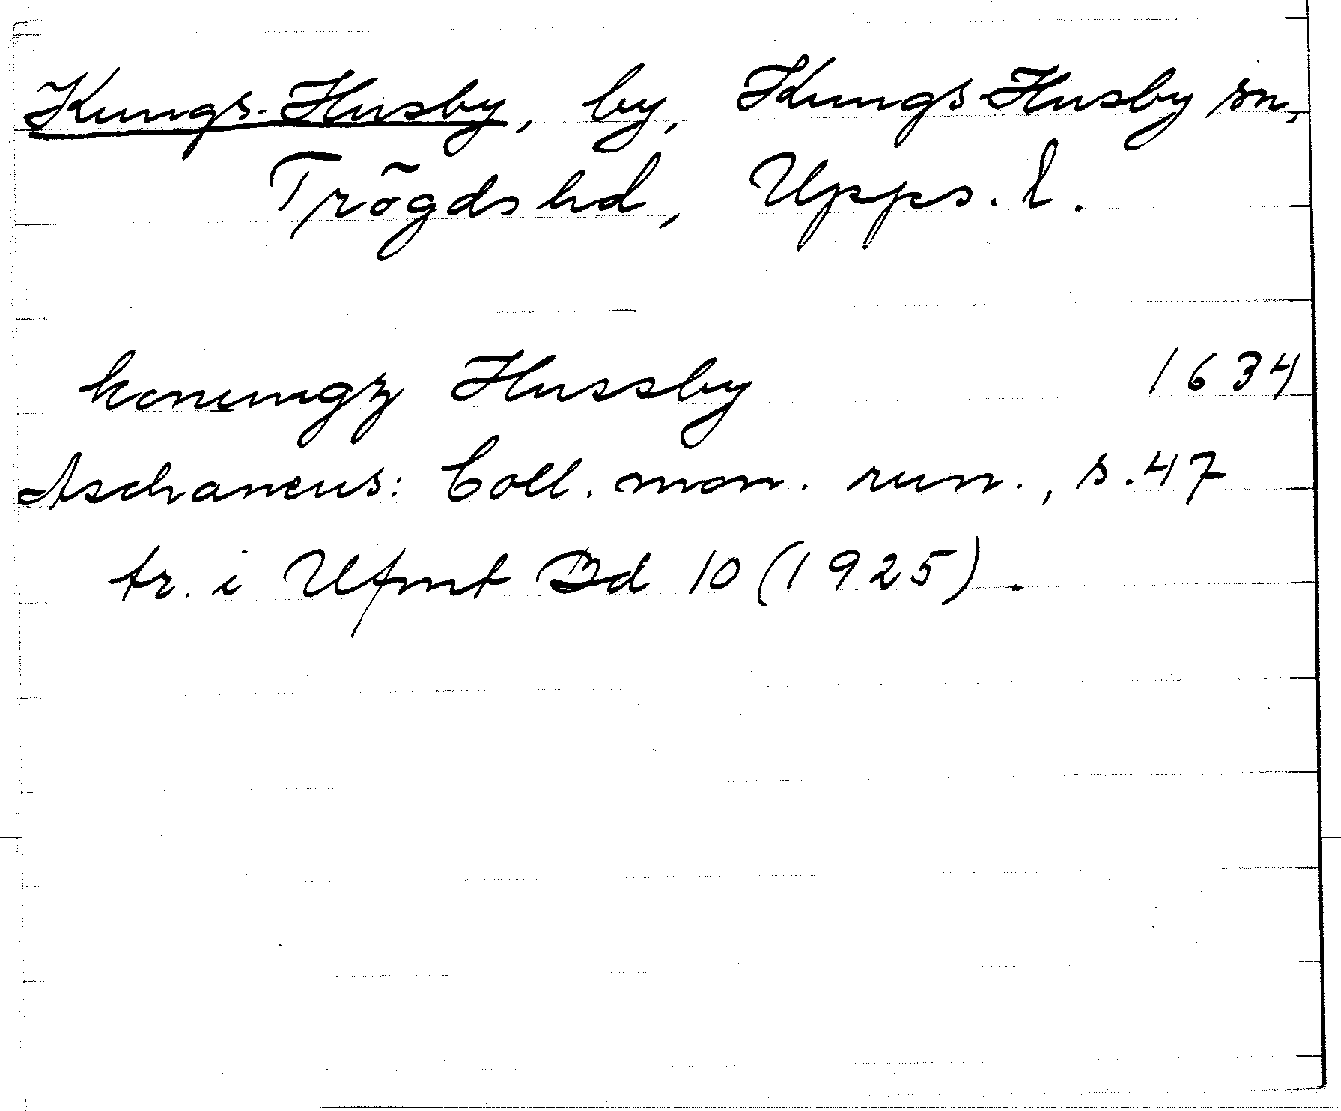 Kungs-Husby, by, Kungs-Husby sn,
Trögds hd, Upps. l.
konungz Hussby 1634
Aschaneus: Coll. mon. run., s. 47
tr. i Ufmt Bd 10 (1925).